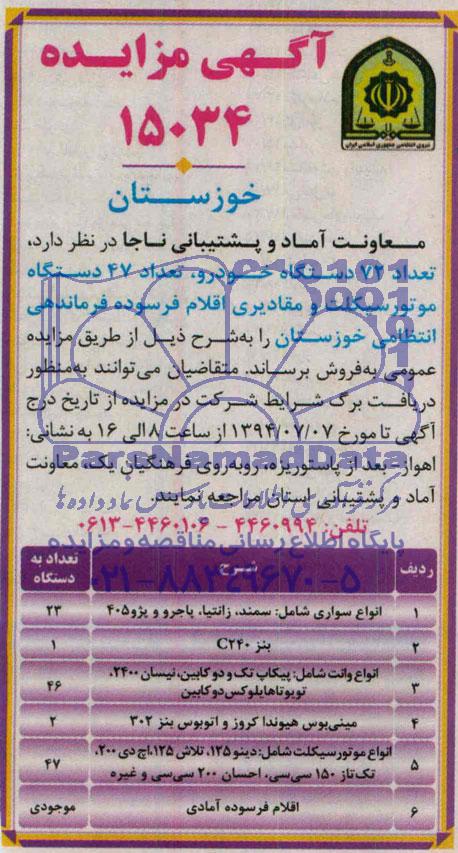 آگهی مزایده
۱۵۰۳۴
خوزستان
نیروی انتظامی جمهوری اسلامی ایران
معاونت آماد و پشتیبانی ناجا در نظر دارد،
تعداد ۷۲ دستگاه خودرو، تعداد ۴۷ دستگاه
موتورسیکلت و مقادیری اقلام فرسوده فرماندهی
انتظامی خوزستان را به‌شرح ذیل از طریق مزایده
عمومی به‌فروش برساند. متقاضیان می‌توانند به‌منظور
دریافت برگ شرایط شرکت در مزایده از تاریخ درج
آگهی تا مورخ ۱۳۹۴/۰۷/۰۷ از ساعت ۸ الی ۱۶ به نشانی:
ParsNamadData
اهواز- بعد از پاستوریزه، روبه‌روی فرهنگیان یک، معاونت
آماد و پشتیبانی استان مراجعه نمایند.
تلفن: ۴۴۶۰۹۹۴ - ۴۴۶۰۱۰۶-۰۶۱۳
پایگاه اطلاع رسانی مناقصه و مزایده
۰۲۱-۸۸۳۴۹۶۷۰-۵
ردیف شرح تعداد به دستگاه
۱ انواع سواری شامل: سمند، زانتیا، پاجرو و پژو۴۰۵ ۲۳
۲ بنز C۲۴۰ ۱
۳ انواع وانت شامل: پیکاپ تک و دو کابین، نیسان ۲۴۰۰،
تویوتا هایلوکس دو کابین ۴۶
۴ مینی‌بوس هیوندا کروز و اتوبوس بنز ۳۰۲ ۲
۵ انواع موتورسیکلت شامل: دینو ۱۲۵، تلاش ۱۲۵، اچ دی ۲۰۰،
تک‌تاز ۱۵۰ سی‌سی، احسان ۲۰۰ سی‌سی و غیره ۴۷
۶ اقلام فرسوده آمادی موجودی